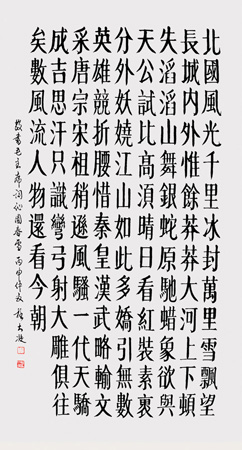 北國風光千里冰封萬里雪飄望
長城内外惟餘莽莽大河上下頓
失滔滔山舞銀蛇原馳蠟象欲與
天公試比高須晴日看紅裝素裹
分外妖嬈江山如此多嬌引無數
英雄競折腰惜秦皇漢武略輸文
采唐宗宋祖稍遜風騷一代天驕
成吉思汗只識彎弓射大雕俱往
矣數風流人物還看今朝
敬書毛主席詞沁園春雪丙申仲